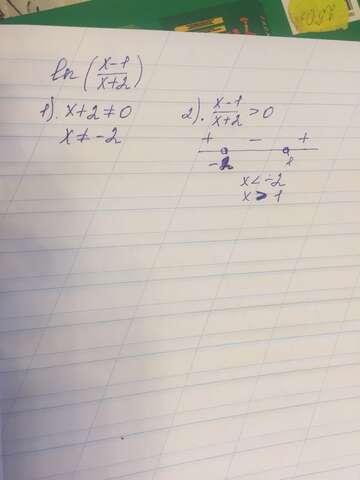 ln(\frac{x-1}{x+2})
1). x+2≠0
x≠-2
2). \frac{x-1}{x+2}>0
+ - +
-2 1
x<-2
x>1